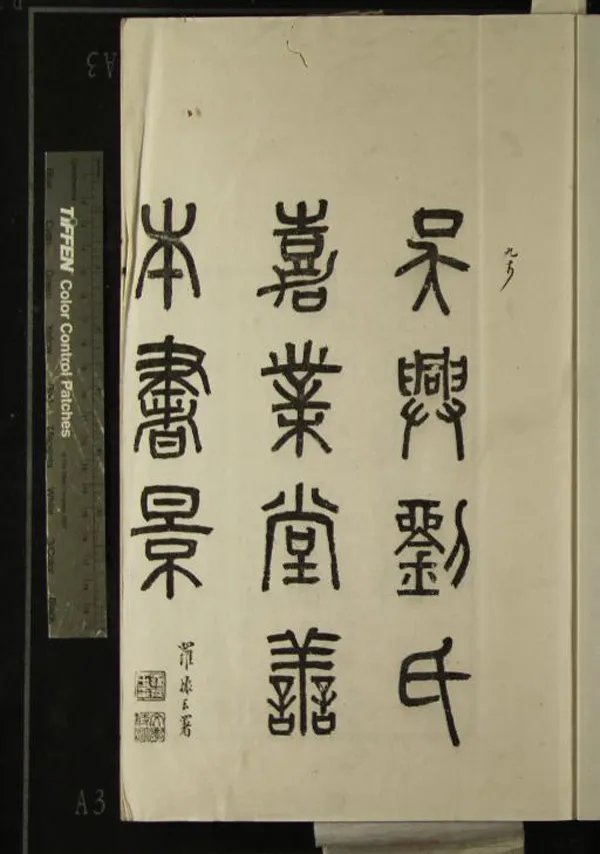 吳興劉氏
嘉業堂善
本書景
羅振玉署
TIFFEN Color Control Patches
A3
A3